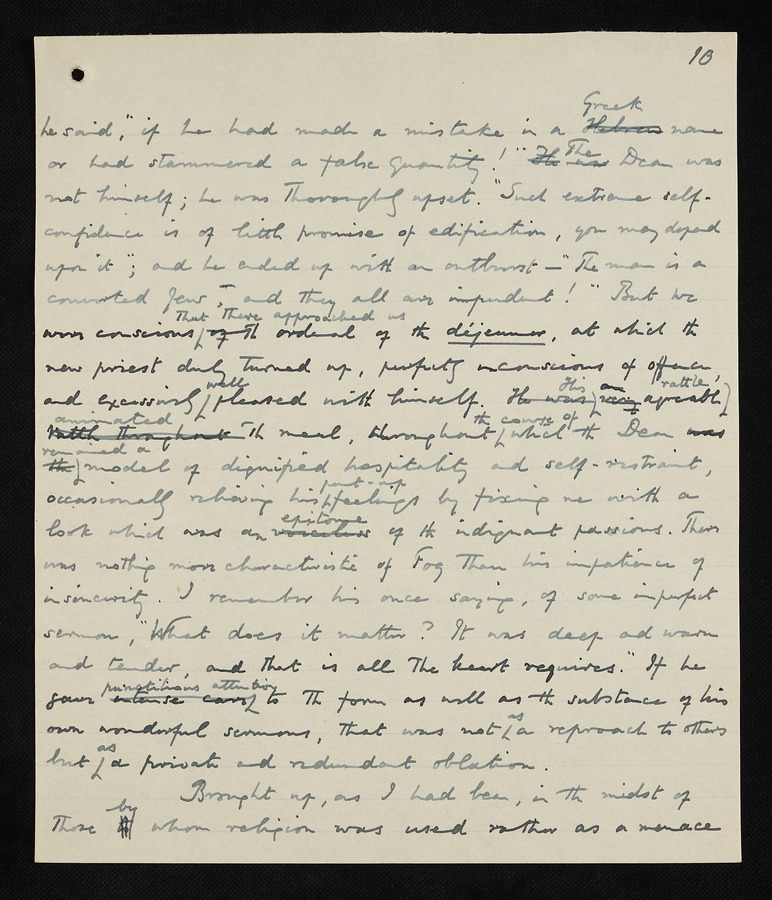 10
Greek
he said, "if he had made a mistake in a Hebrew name
or had stammered a false quantity!" He was The Dean was
not himself; he was thoroughly upset. "Such extreme self-
confidence is of little promise of edification, you may depend
upon it"; and he ended up with an outburst — "The man is a
converted Jew, and they all are impudent!" But we
that there approached us
were conscious of the ordeal of the déjeuner, at which the
new priest duly turned up, perfectly unconscious of offence,
well His an rattle,
and excessively pleased with himself. He was very agreeable
animated the course of
rattle throughout the meal, throughout which the Dean was
remained a
the model of dignified hospitality and self-restraint,
pent-up
occasionally relieving his feelings by fixing me with a
epitome
look which was an voiceless of the indignant passions. There
was nothing more characteristic of Fog than his impatience of
insincerity. I remember his once saying, of some imperfect
sermon, "What does it matter? It was deep and warm
and tender, and that is all the heart requires." If he
punctilious attention
gave intense care to the form as well as the substance of his
as
own wonderful sermons, that was not a reproach to others
as
but a private and redundant oblation.
Brought up, as I had been, in the midst of
by
those whom religion was used rather as a menace